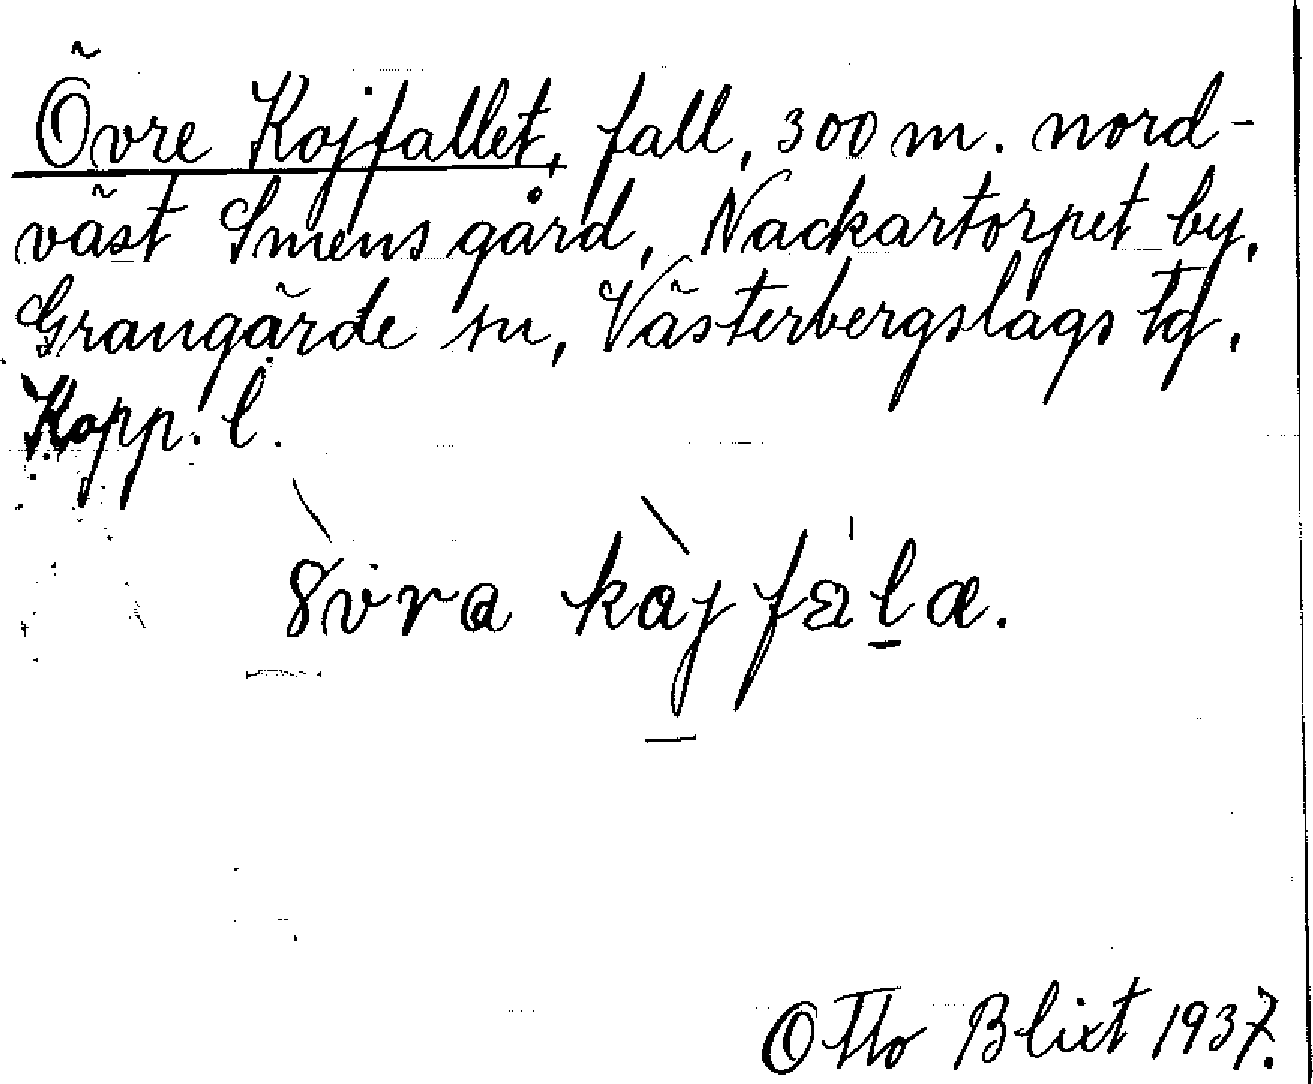 Övre Kojfallet, fall, 300 m. nord-
väst Smens gård, Nackartorpet by,
Grangärde sn, Västerbergslags tg,
Kopp. l.
Otto Blixt 1937.